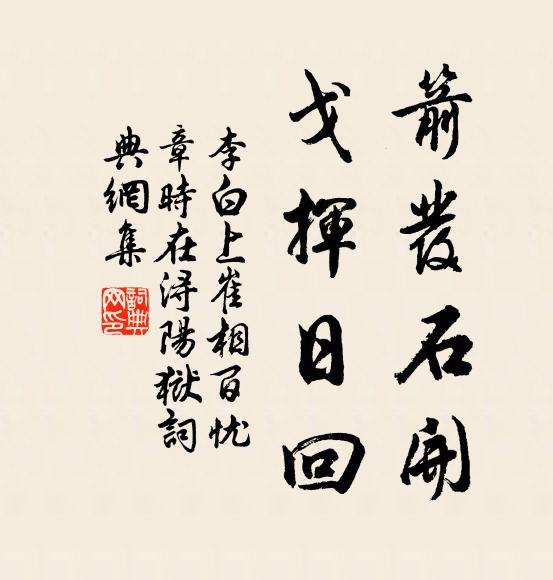 箭發石開
戈揮日回
李白上崔相百忧
章時在浔陽獄詞
典網集
詞典
网印